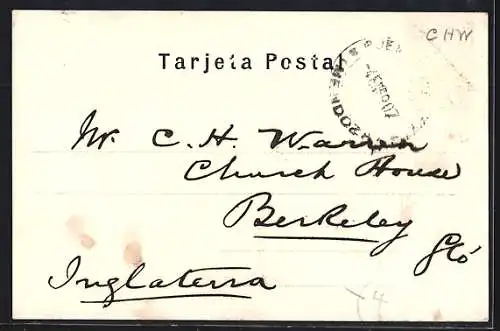 CHW
Tarjeta Postal
Mr. C. H. Warren
Church House
Berkeley
Glo'
Inglaterra